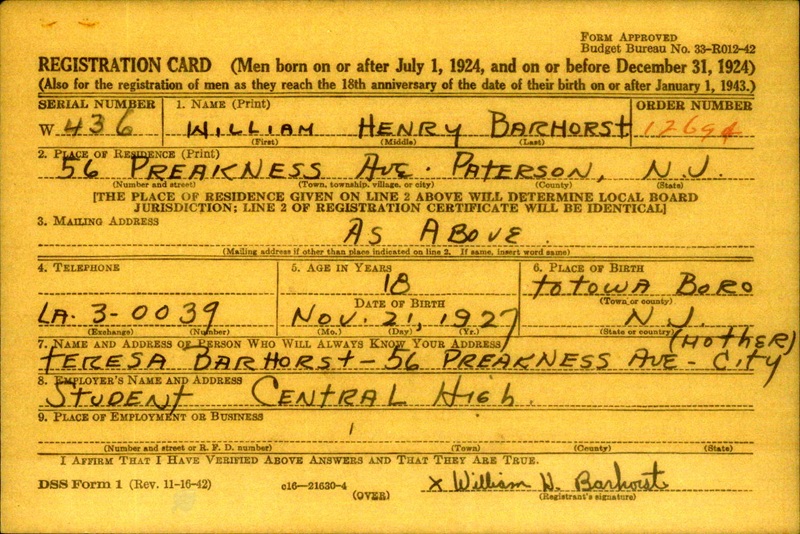 FORM APPROVED
Budget Bureau No. 33-R012-42
REGISTRATION CARD (Men born on or after July 1, 1924, and on or before December 31, 1924)
(Also for the registration of men as they reach the 18th anniversary of the date of their birth on or after January 1, 1943.)
SERIAL NUMBER 1. NAME (Print) ORDER NUMBER
W 436 WILLIAM HENRY BARHORST
(First) (Middle) (Last)
2. PLACE OF RESIDENCE (Print)
56 PREAKNESS AVE. PATERSON, N.J.
(Number and street) (Town, township, village, or city) (County) (State)
[THE PLACE OF RESIDENCE GIVEN ON LINE 2 ABOVE WILL DETERMINE LOCAL BOARD
JURISDICTION; LINE 2 OF REGISTRATION CERTIFICATE WILL BE IDENTICAL]
3. MAILING ADDRESS
AS ABOVE.
(Mailing address if other than place indicated on line 2. If same, insert word same)
4. TELEPHONE 5. AGE IN YEARS 6. PLACE OF BIRTH
18 TOTOWA BORO
DATE OF BIRTH (Town or county)
LA. 3-0039 NOV. 21, 1927 N.J.
(Exchange) (Number) (Mo.) (Day) (Yr.) (State or country)
7. NAME AND ADDRESS OF PERSON WHO WILL ALWAYS KNOW YOUR ADDRESS (MOTHER)
TERESA BARHORST - 56 PREAKNESS AVE - CITY
8. EMPLOYER'S NAME AND ADDRESS
STUDENT CENTRAL HIGH.
9. PLACE OF EMPLOYMENT OR BUSINESS
(Number and street or R. F. D. number) (Town) (County) (State)
I AFFIRM THAT I HAVE VERIFIED ABOVE ANSWERS AND THAT THEY ARE TRUE.
DSS Form 1 (Rev. 11-16-42) c16—21630-4 X William H. Barhorst
(OVER) (Registrant's signature)